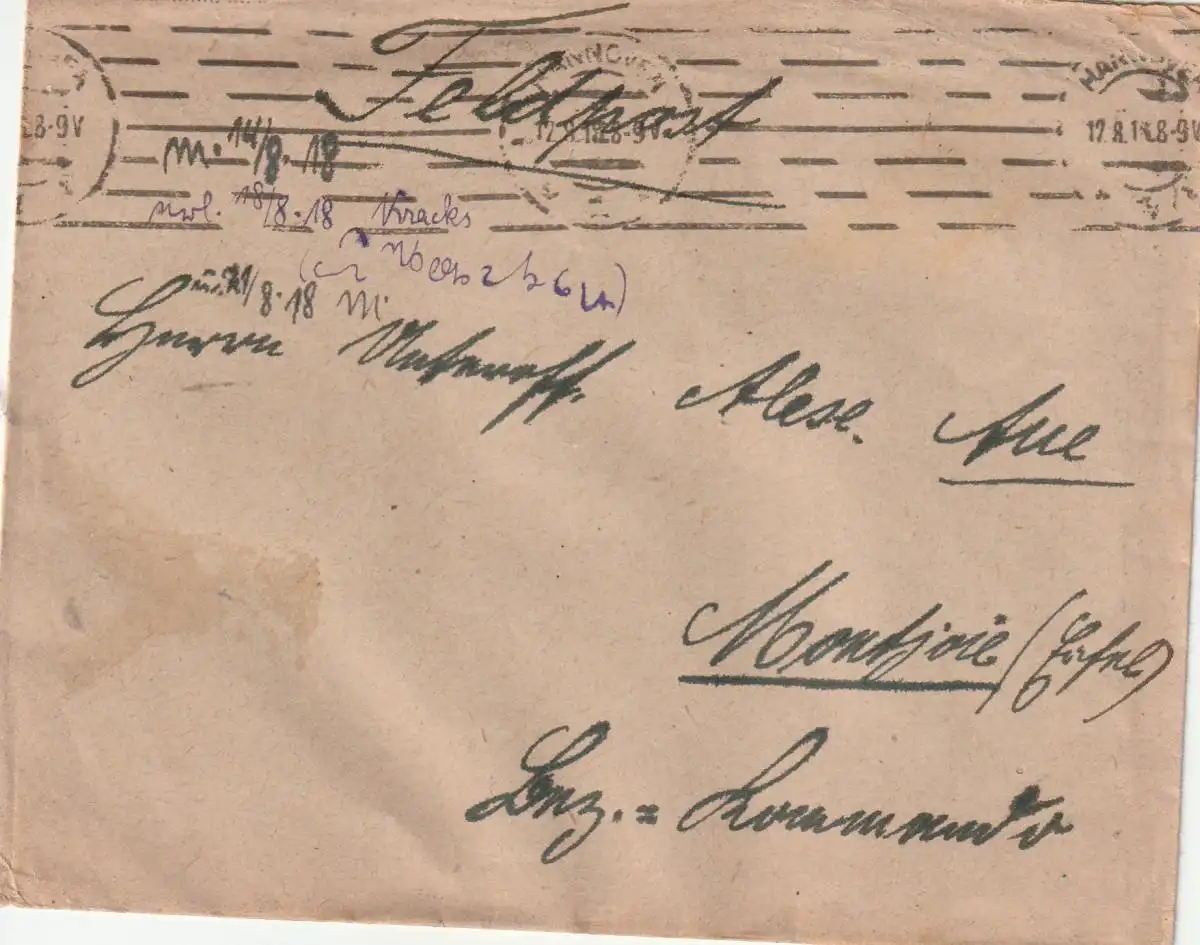 Feldpost
HANNOVER
12.8.18.8-9V
HANNOVER
12.8.18.8-9V
8-9V
M. 14/8.18
18/8.18 Kracks
21/8.18 M.
Herrn Unteroff. Alex. Aue
Montjoie (Eifel)
Bez.=Kommando